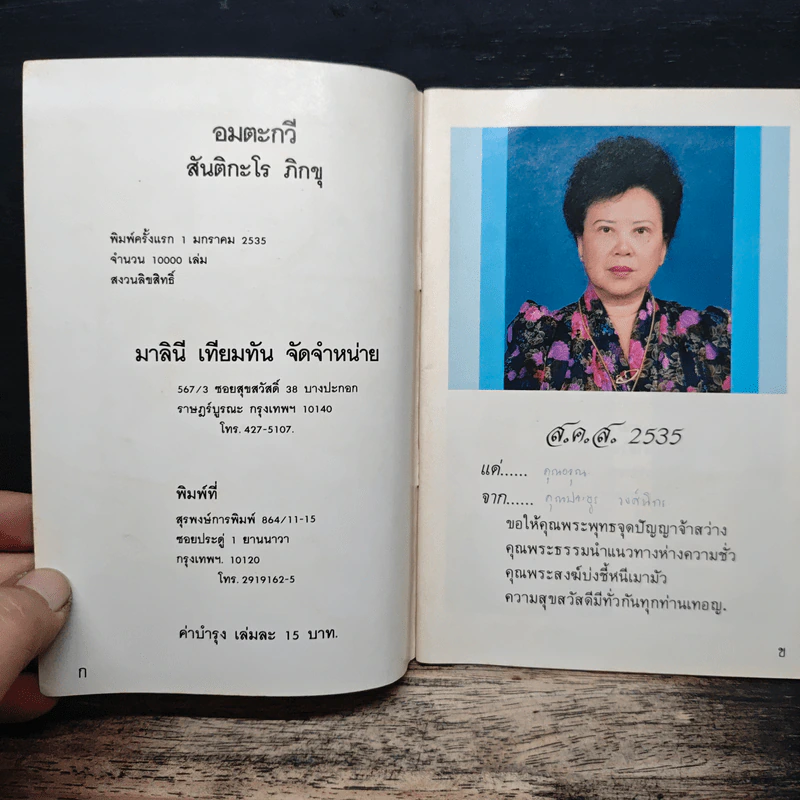 อมตะกวี
สันติกะโร ภิกขุ
พิมพ์ครั้งแรก 1 มกราคม 2535
จำนวน 10000 เล่ม
สงวนลิขสิทธิ์
มาลินี เทียมทัน จัดจำหน่าย
567/3 ซอยสุขสวัสดิ์ 38 บางปะกอก
ราษฎร์บูรณะ กรุงเทพฯ 10140
โทร. 427-5107.
พิมพ์ที่
สุรพงษ์การพิมพ์ 864/11-15
ซอยประดู่ 1 ยานนาวา
กรุงเทพฯ. 10120
โทร. 2919162-5
ค่าบำรุง เล่มละ 15 บาท.
ก
ส.ค.ส. 2535
แด่...... คุณอรุณ
จาก...... คุณประยูร
ขอให้คุณพระพุทธจุดปัญญาจ้าสว่าง
คุณพระธรรมนำแนวทางห่างความชั่ว
คุณพระสงฆ์บ่งชี้หนีเมามัว
ความสุขสวัสดีมีทั่วกันทุกท่านเทอญ.
ข